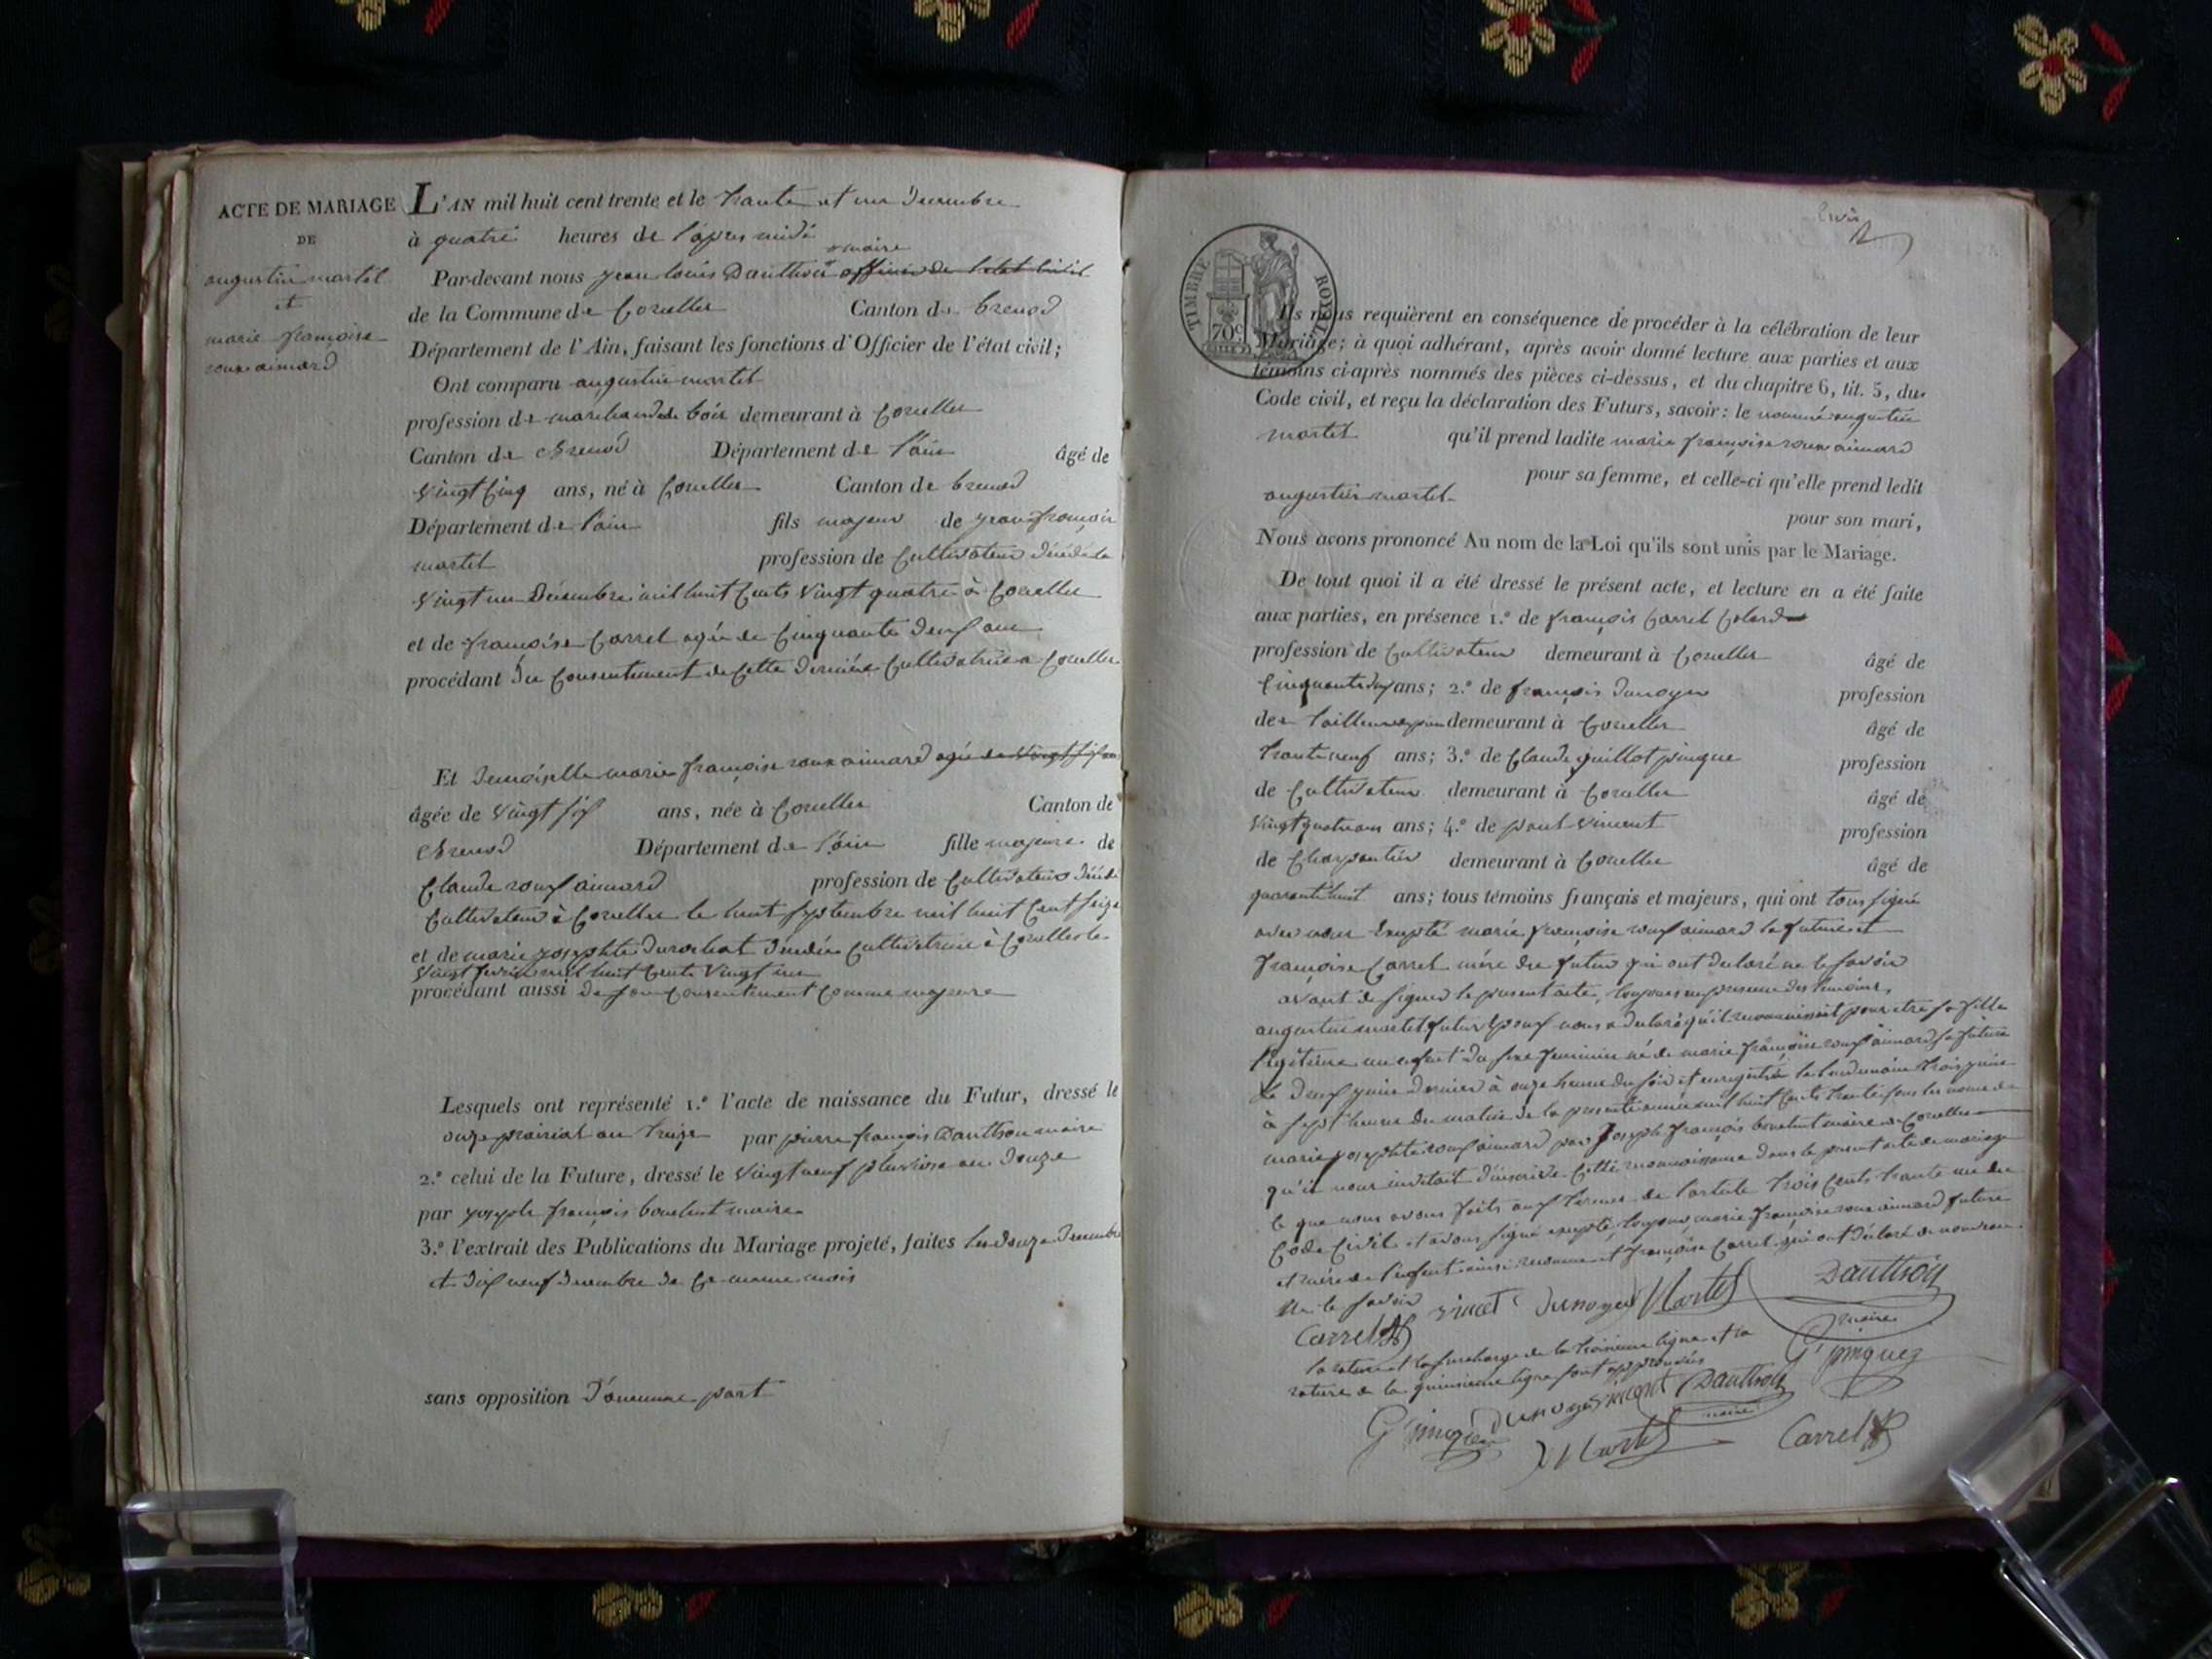 ACTE DE MARIAGE
DE
augustin martel
et
marie françoise
roux aimard
L'AN mil huit cent trente et le trente et un Decembre
à quatre heures de l'apres midi
maire
Par-devant nous jean louis Dauthon officier de l'etat civil
de la Commune de Corcelles Canton de brenod
Département de l'Ain, faisant les fonctions d'Officier de l'état civil;
Ont comparu augustin martel
profession de marchand de bois demeurant à Corcelles
Canton de Brenod Département de l'ain âgé de
vingt Cinq ans, né à Corcelles Canton de brenod
Département de l'ain fils majeur de jean françois
martel profession de Cultivateur décédé le
vingt un Décembre mil huit Cents vingt quatre à Corcelles
et de françoise Carrel agée de Cinquante deux ans
procédant du Consentement de Cette derniere Cultivatrice a Corcelles
Et demoiselle marie françoise roux aimard agée de vingt six ans
âgée de vingt six ans, née à Corcelles Canton de
Brenod Département de l'ain fille majeure de
Claude roux aimard profession de Cultivateur décédé
Cultivateur à Corcelles le huit septembre mil huit Cent seize
et de marie josephte Durochat décédée Cultivatrice à Corcelles le
vingt fevrier mil huit Cents vingt un
procédant aussi de son Consentement Comme majeure
Lesquels ont représenté 1.° l'acte de naissance du Futur, dressé le
onze prairial an treize par pierre françois Dauthon maire
2.° celui de la Future, dressé le vingt neuf pluviose an douze
par joseph françois bouchut maire
3.° l'extrait des Publications du Mariage projeté, faites les douze Decembre
et dix neuf decembre de Ce meme mois
sans opposition d'aucune part
TIMBRE ROYAL
70c
Ils nous requièrent en conséquence de procéder à la célébration de leur
Mariage; à quoi adhérant, après avoir donné lecture aux parties et aux
témoins ci-après nommés des pièces ci-dessus, et du chapitre 6, tit. 5, du
Code civil, et reçu la déclaration des Futurs, savoir: le nommé augustin
martel qu'il prend ladite marie françoise roux aimard
pour sa femme, et celle-ci qu'elle prend ledit
augustin martel
pour son mari,
Nous avons prononcé Au nom de la Loi qu'ils sont unis par le Mariage.
De tout quoi il a été dressé le présent acte, et lecture en a été faite
aux parties, en présence 1.° de françois Carrel Colard
profession de Cultivateur demeurant à Corcelles âgé de
Cinquante deux ans; 2.° de françois Dunoyer profession
de tailleur demeurant à Corcelles âgé de
trente neuf ans; 3.° de Claude guillot pingue profession
de Cultivateur demeurant à Corcelles âgé de
vingt quatre ans ans; 4.° de paul vincent profession
de Charpentier demeurant à Corcelles âgé de
quarente huit ans; tous témoins français et majeurs, qui ont tous signé
avec nous Excepté marie françoise roux aimard la future et
françoise Carrel mére du futur qui ont declaré ne le savoir
avant de signer le present acte, toujours en presence des temoins,
augustin martel futur Epoux nous a declaré qu'il reconnaissait pour etre sa fille
legitime un enfant du sexe feminin né de marie françoise roux aimard sa future
Le deux juin dernier à onze heures du soir et enregistré le lendemain trois juin
à sept heures du matin de la presente année mil huit Cents trente sous les noms de
marie josephte roux aimard par Joseph françois bouchut maire de Corcelles
qu'il nous invitait d'inscrire Cette reconnoissance dans le present acte de mariage
Ce que nous avons fait aux termes de l'article trois Cents trente un du
Code Civil et avons signé excepté toujours marie françoise roux aimard future
et mére de l'enfant ainsi reconnu et françoise Carrel qui ont déclaré de nouveau
ne le savoir vincet Dunoyer Martel Dauthon
maire
Carrel
la rature et la surcharge de la troisieme ligne et la
rature de la quinsieme ligne sont approuvées
G pinguez
G pingue Dunoyer vincent Dauthon
maire
Martel Carrel